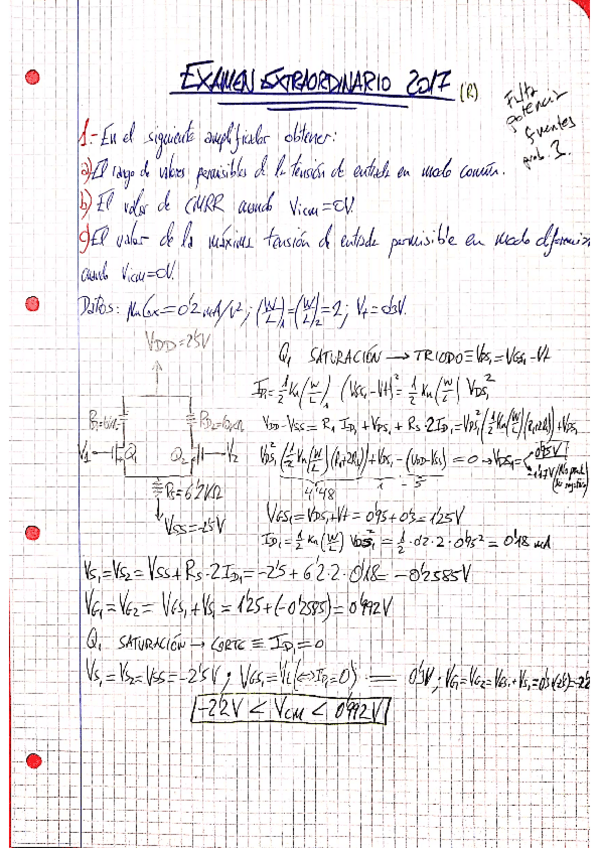 EXAMEN EXTRAORDINARIO 2017 (R)
Falta
potencia
fuentes
prob. 3.
1.- En el siguiente amplificador obtener:
a) El rango de valores permisibles de la tensión de entrada en modo común.
b) El valor de CMRR cuando Vicm=0V.
c) El valor de la máxima tensión de entrada permisible en modo diferencial
cuando Vicm=0V.
Datos: µnCox=0'2 mA/V²; (W/L)₁=(W/L)₂=2; Vt=0'3V.
VDD=2'5V
Q₁ SATURACIÓN → TRIODO ≡ VDS₁=VGS₁-Vt
ID₁=1/2 Kn(W/L)₁ (VGS₁-Vt)²=1/2 Kn(W/L) VDS₁²
VDD-VSS=R₁ID₁+VDS₁+RS·2ID₁=VDS₁²(1/2 Kn(W/L)(R₁+2RS))+VDS₁
VDS₁²(1/2 Kn(W/L)(R₁+2RS))+VDS₁-(VDD-VSS)=0→VDS₁=
0'95V
4'48 1 -5
V₁ Q₁ Q₂ V₂
RS=6'2KΩ
VSS=-2'5V
VGS₁=VDS₁+Vt=0'95+0'3=1'25V
ID₁=1/2 Kn(W/L) VDS₁²=1/2·0'2·2·0'95²=0'18 mA
VS₁=VS₂=VSS+RS·2ID₁=-2'5+6'2·2·0'18=-0'2585V
VG₁=VG₂=VGS₁+VS₁=1'25+(-0'2585)=0'992V
Q₁ SATURACIÓN → CORTE ≡ ID₁=0
VS₁=VS₂=VSS=-2'5V; VGS₁=Vt(⇔ID₁=0) = 0'3V; VG₁=VG₂=VGS₁+VS₁=0'3+(-2'5)=-2'2
-2'2V < VCM < 0'992V